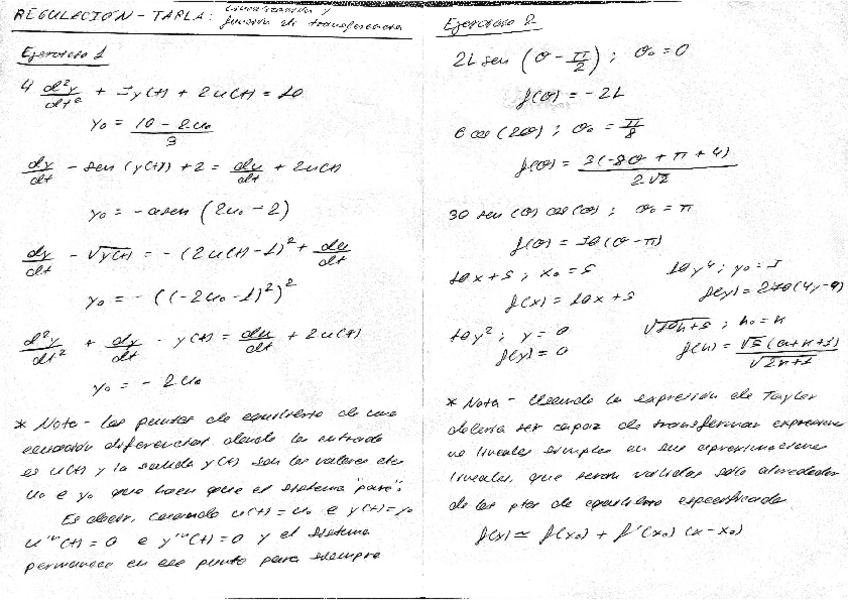 REGULACIÓN - TABLA: Linealización y
función de transferencia
Ejercicio 1
4 d²y/dt² + 3y(t) + 2u(t) = 10
y₀ = (10 - 2u₀)/3
dy/dt - sen (y(t)) + 2 = du/dt + 2u(t)
y₀ = -asen (2u₀ - 2)
dy/dt - √y(t) = -(2u(t)-1)² + du/dt
y₀ = -((-2u₀-1)²)²
d²y/dt² + dy/dt - y(t) = du/dt + 2u(t)
y₀ = -2u₀
* Nota - los puntos de equilibrio de una
ecuación diferencial donde la entrada
es u(t) y la salida y(t) son los valores
u₀ e y₀ que hacen que el sistema "pare".
Es decir, cuando u(t)=u₀ e y(t)=y₀
u'ⁿ(t)=0 e y'ⁿ(t)=0 y el sistema
permanece en ese punto para siempre
Ejercicio 2
2L sen (θ - π/2) ; θ₀ = 0
f(θ) = -2L
6 cos (2θ) ; θ₀ = π/8
f(θ) = 3(-8θ + π + 4)/(2√2)
30 sen(θ) cos(θ) ; θ₀ = π
f(θ) = 30(θ - π)
10x+5 ; x₀ = 5
f(x) = 10x + 5
10y⁴ ; y₀ = 3
10y² ; y = 0
f(y) = 0
* Nota - Usando la expresión de Taylor
debería ser capaz de transformar expresiones
no lineales simples en sus aproximaciones
lineales, que serán válidas sólo alrededor
de los ptos de equilibrio especificados
f(x) ≃ f(x₀) + f'(x₀) (x - x₀)